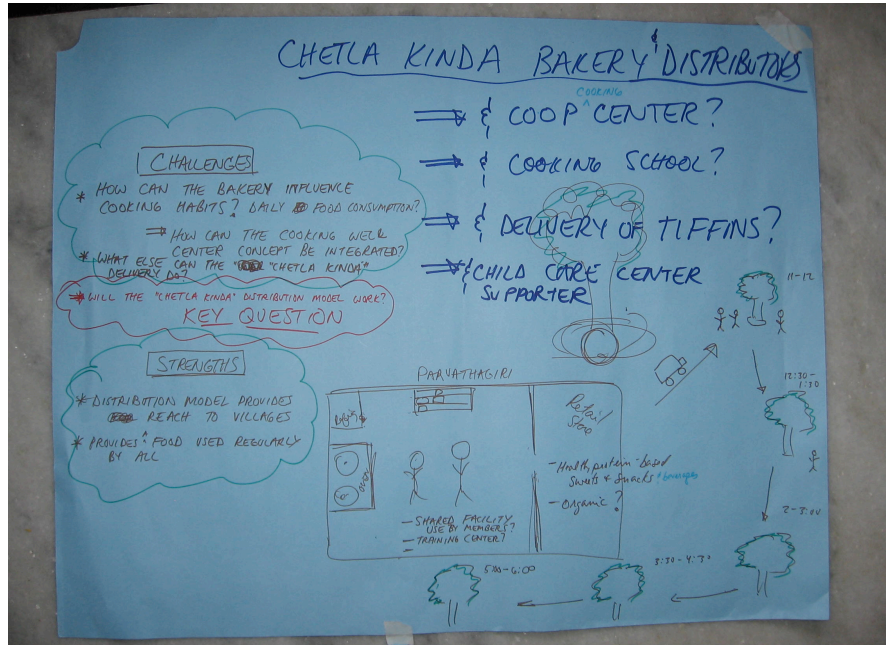 CHETLA KINDA BAKERY & DISTRIBUTORS
⇒ & COOP COOKING CENTER?
⇒ & COOKING SCHOOL?
⇒ & DELIVERY OF TIFFINS?
⇒ & CHILD CARE CENTER
SUPPORTER
CHALLENGES
* HOW CAN THE BAKERY INFLUENCE
COOKING HABITS? DAILY FOOD CONSUMPTION?
⇒ HOW CAN THE COOKING
CENTER CONCEPT BE INTEGRATED?
* WHAT ELSE CAN THE "CHETLA KINDA"
DELIVERY DO?
⇒ WILL THE "CHETLA KINDA" DISTRIBUTION MODEL WORK?
KEY QUESTION
STRENGTHS
* DISTRIBUTION MODEL PROVIDES
REACH TO VILLAGES
* PROVIDES ^ FOOD USED REGULARLY
BY ALL
PARVATHAGIRI
- SHARED FACILITY
USE BY MEMBERS?
- TRAINING CENTER?
-
Retail
Store
- Health, protein-based
Sweets & Snacks & beverages
- Organic?
11-12
12:30-
1:30
2-3:00
3:30-4:30
5:00-6:00